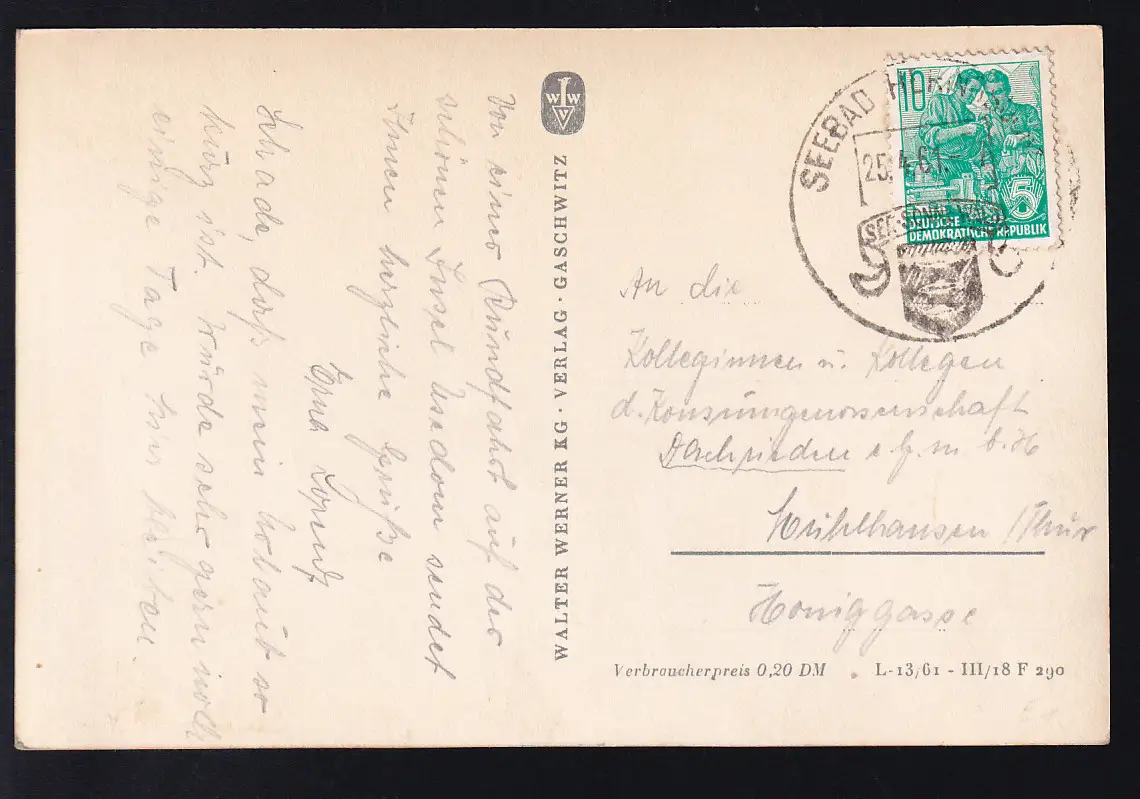 Von einer Rundfahrt auf der
schönen Insel Usedom sendet
Ihnen herzliche Grüße
Erna
Schade, daß mein Urlaub so
kurz ist. Würde sehr gern noch
einige Tage hier
W W V
WALTER WERNER KG · VERLAG · GASCHWITZ
SEEBAD
25.4.61.-
SEE·SONNE·WALD
10
5
DEUTSCHE
DEMOKRATISCHE REPUBLIK
An die
Kolleginnen u. Kollegen
d. Konsumgenossenschaft
Dachrieden e.g.m.b.H
Mühlhausen /Thür
Honiggasse
Verbraucherpreis 0,20 DM
L-13/61 - III/18 F 290